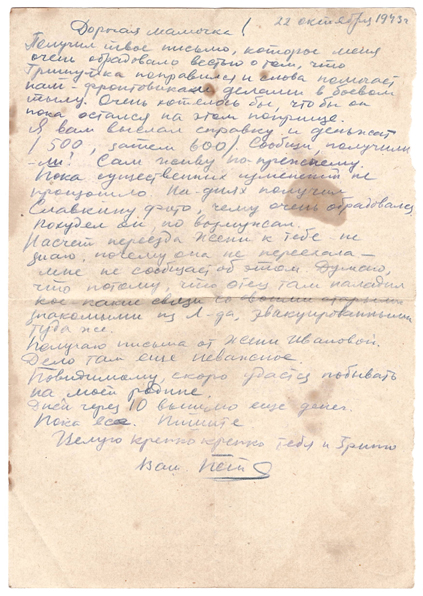 Дорогая мамочка! 22 октября 1943 г
Получил твое письмо, которое меня
очень обрадовало вестью о том, что
поправился и снова помогает
нам - фронтовикам делами в боевом
тылу. Очень хотелось бы, чтобы он
пока остался на этом поприще.
Я вам выслал справку и деньжат
1500, затем 600/. Сообщи, получили
-ли? Сам живу по-прежнему.
Пока существенных изменений не
произошло. На-днях получил
Славкину фото, чему очень обрадовался
Похудел он, но возмужал.
Насчет переезда Жени к тебе не
знаю, почему она не переехала -
мне не сообщает об этом. Думаю,
что потому, что отец там наладил
кое какие связи со своими старыми
знакомыми из Л-да, эвакуированными
туда же.
Получаю письма от Жени Ивановой.
Дело там еще неважное.
Повидимому, скоро удастся побывать
на моей родине.
Дней через 10 вышлю еще денег.
Пока все. Пишите
Целую крепко крепко тебя и Гришу
Ваш